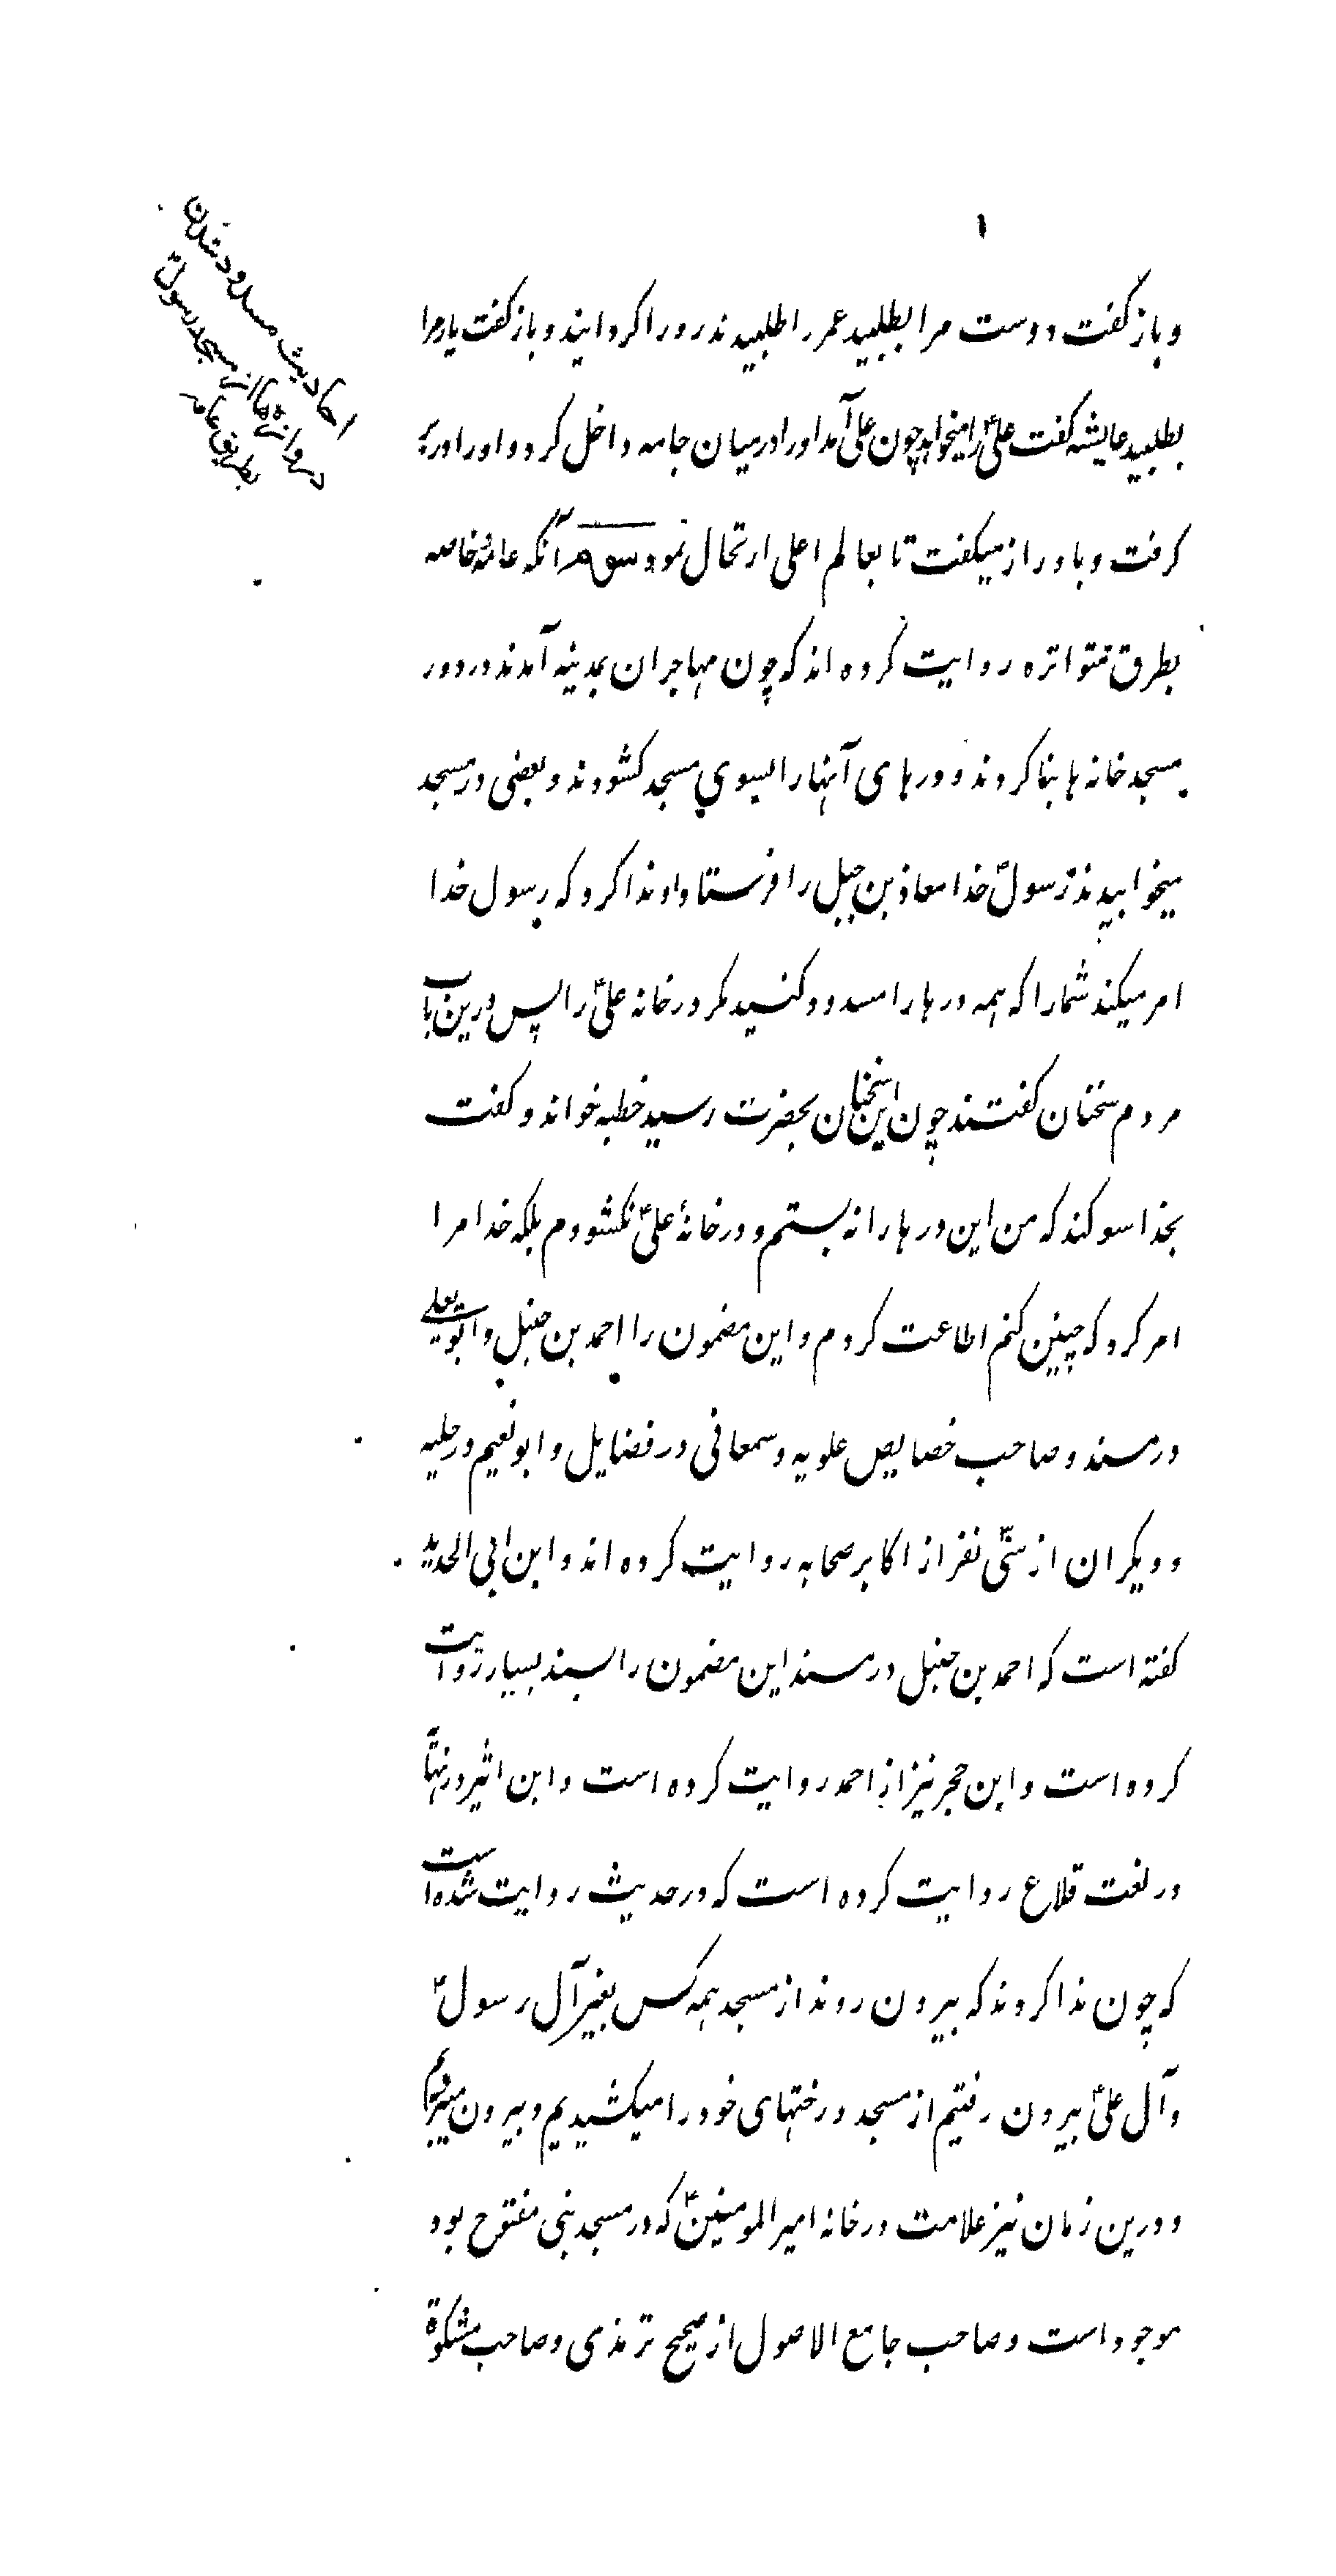 ۱
احادیث مسدود شدن
دروازه‌ها از مسجد رسولؐ
بطریق عامه
و باز گفت دوست مرا بطلبید عمر را طلبیدند رو را گردانید و باز گفت یار مرا
بطلبید عایشه گفت علیؑ را میخواهد چون علی آمد او را در میان جامه داخل کرد و او را در بر
گرفت و با او راز میگفت تا بعالم اعلی ارتحال نمود سوم آنکه عامه و خاصه
بطرق متواتره روایت کرده اند که چون مهاجران بمدینه آمدند در دور
مسجد خانه ها بنا کردند و درهای آنها را بسوی مسجد گشودند و بعضی در مسجد
میخوابیدند رسولؐ خدا معاذ بن جبل را فرستاد و ندا کرد که رسول خدا
امر میکند شما را که همه درها را مسدود کنید مگر در خانه علیؑ را پس درین باب
مردم سخنان گفتند چون این سخنان بحضرت رسید خطبه خواند و گفت
بخدا سوگند که من این درها را نه بستم و در خانهٔ علیؑ نگشودم بلکه خدا مرا
امر کرد که چنین کنم اطاعت کردم و این مضمون را احمد بن حنبل و ابو یعلی
در مسند و صاحب خصایص علویه و سمعانی در فضایل و ابو نعیم در حلیه
و دیگران از سی نفر از اکابر صحابه روایت کرده اند و ابن ابی الحدید
گفته است که احمد بن حنبل در مسند این مضمون را بسند بسیار روایت
کرده است و ابن حجر نیز از احمد روایت کرده است و ابن اثیر در نهایه
در لغت قلاع روایت کرده است که در حدیث روایت شده است
که چون ندا کردند که بیرون روند از مسجد همه کس بغیر آل رسولؐ
و آل علیؑ بیرون رفتیم از مسجد و رختهای خود را میکشیدیم و بیرون میبردیم
و درین زمان نیز علامت در خانه امیر المومنینؑ که در مسجد نبی مفتوح بود
موجود است و صاحب جامع الاصول از صحیح ترمذی و صاحب مشکوة